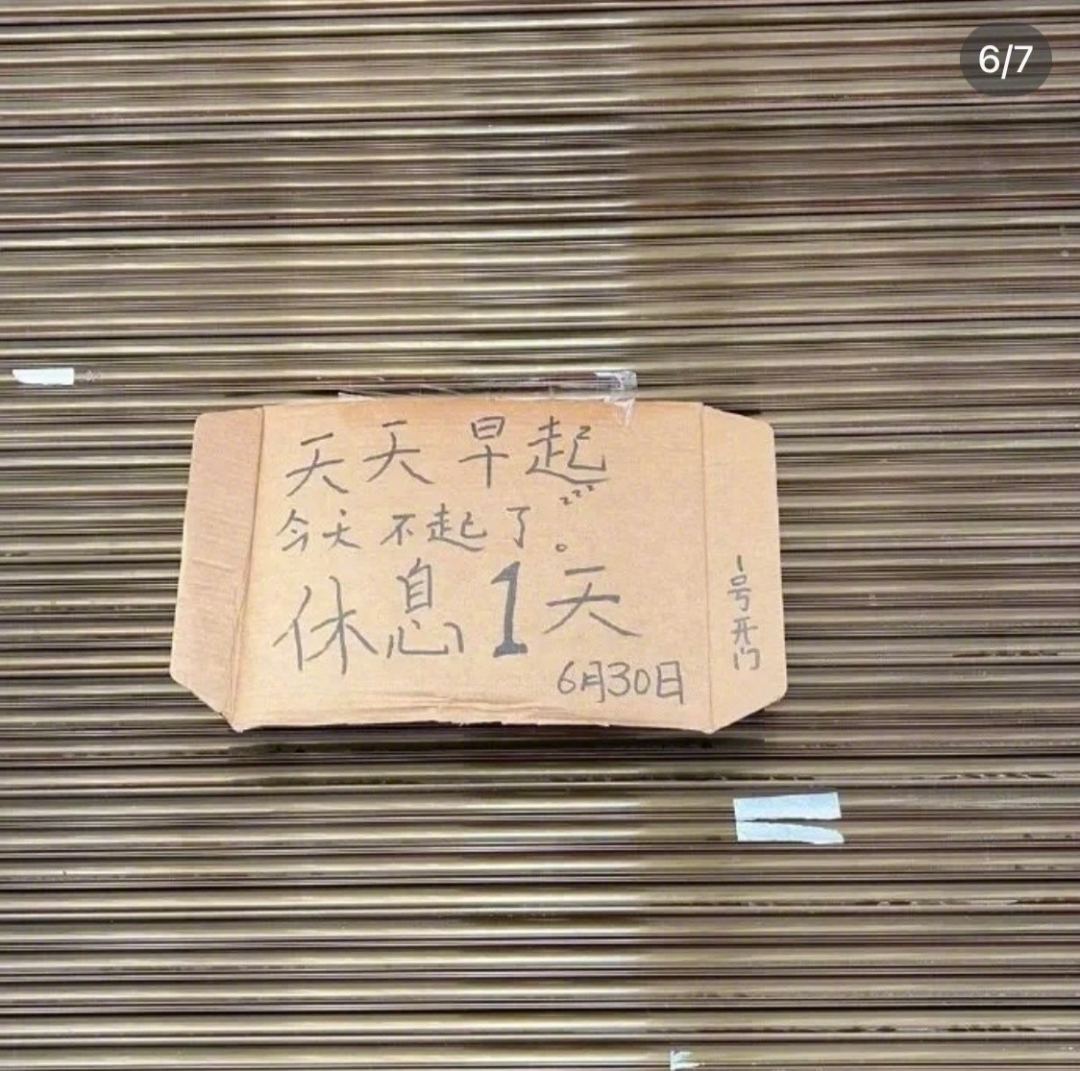 6/7
天天早起
zzz
今天不起了。
休息1天
6月30日
1号开门